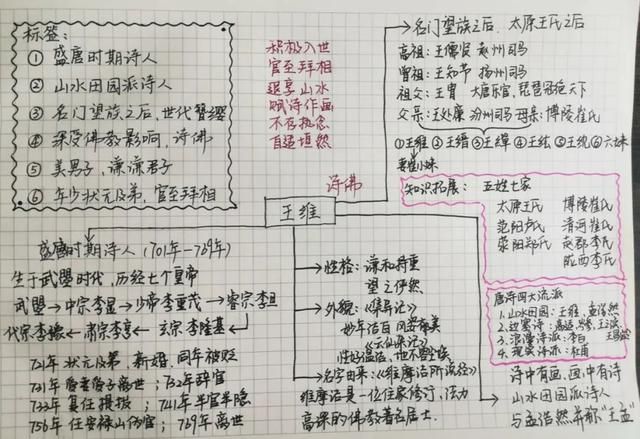 标签：
① 盛唐时期诗人
② 山水田园派诗人
③ 名门望族之后，世代簪缨
④ 深受佛教影响，诗佛
⑤ 美男子，谦谦君子
⑥ 年少状元及第，官至拜相
积极入世
官至拜相
退享山水
赋诗作画
不存执念
自适坦然
诗佛
王维
名门望族之后，太原王氏之后
高祖：王儒贤 赵州司马
曾祖：王知节 扬州司马
祖父：王胄 大唐乐官，琵琶冠绝天下
父亲：王处廉 汾州司马 母亲：博陵崔氏
①王维 ②王缙 ③王繟 ④王纮 ⑤王紞 ⑥六妹
妻崔小妹
知识拓展：五姓七家
太原王氏 博陵崔氏
范阳卢氏 清河崔氏
荥阳郑氏 赵郡李氏
陇西李氏
唐诗四大流派
1. 山水田园：王维、孟浩然
2. 边塞诗：高适、岑参、王之涣
王昌龄
3. 浪漫诗派：李白
4. 现实诗派：杜甫
诗中有画，画中有诗
山水田园派诗人
与孟浩然并称"王孟"
盛唐时期诗人（701年－769年）
生于武曌时代，历经七个皇帝
武曌→中宗李显→少帝李重茂→睿宗李旦
代宗李豫←肃宗李亨←玄宗李隆基←
721年 状元及第，新婚，同年被贬
731年 爱妻爱子离世；732年辞官
733年 复任提拔；741年半官半隐
756年 任安禄山伪官；769年离世
性格：谦和持重
望之俨然
外貌：《集异记》
妙年洁白 风姿郁美
《云仙杂记》
性好温洁，地不容尘埃
名字由来：《维摩诘所说经》
维摩诘是一位住家修行，法力
高深的佛教著名居士